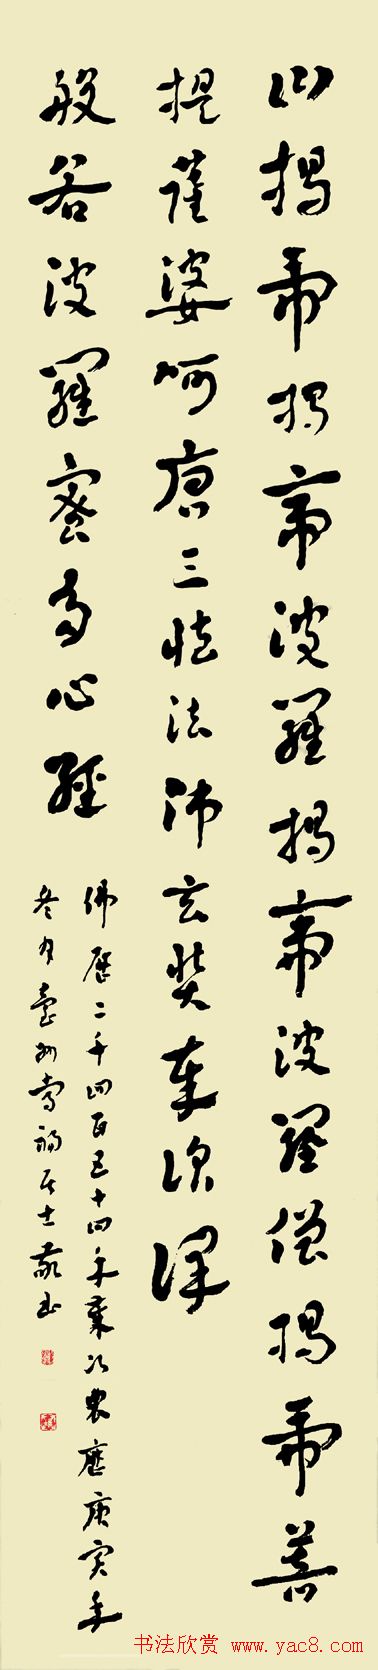 揭帝揭帝波羅揭帝波羅僧揭帝菩
提薩婆呵唐三藏法師玄奘奉詔譯
般若波羅蜜多心經
佛歷二千四百五十四年歲次農歷庚寅年
冬月臺州壽福居士敬書
书法欣赏 www.yac8.com